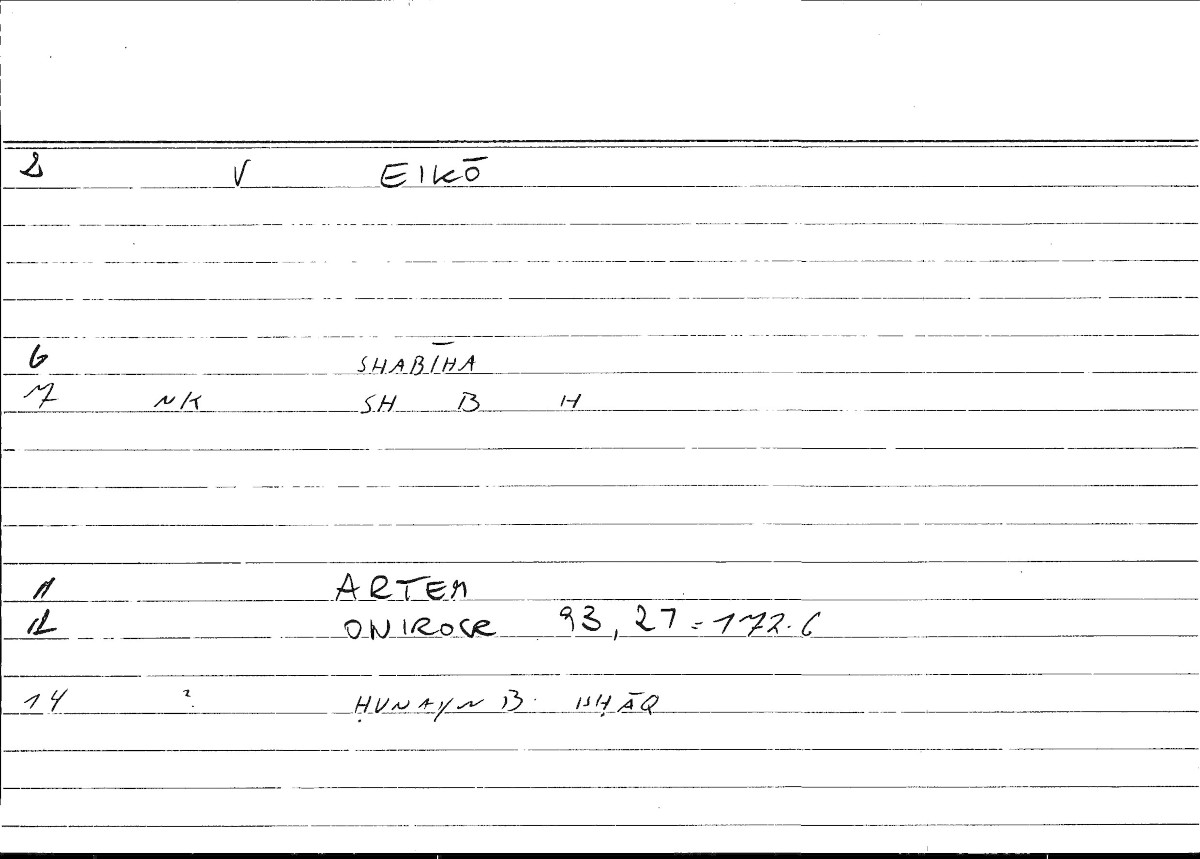 2 V EIKŌ
6 SHABĪHA
7 NK SH B H
11 ARTEM
12 ONIROCR 93,27=172.6
14 ? ḤUNAYN B. ISḤĀQ